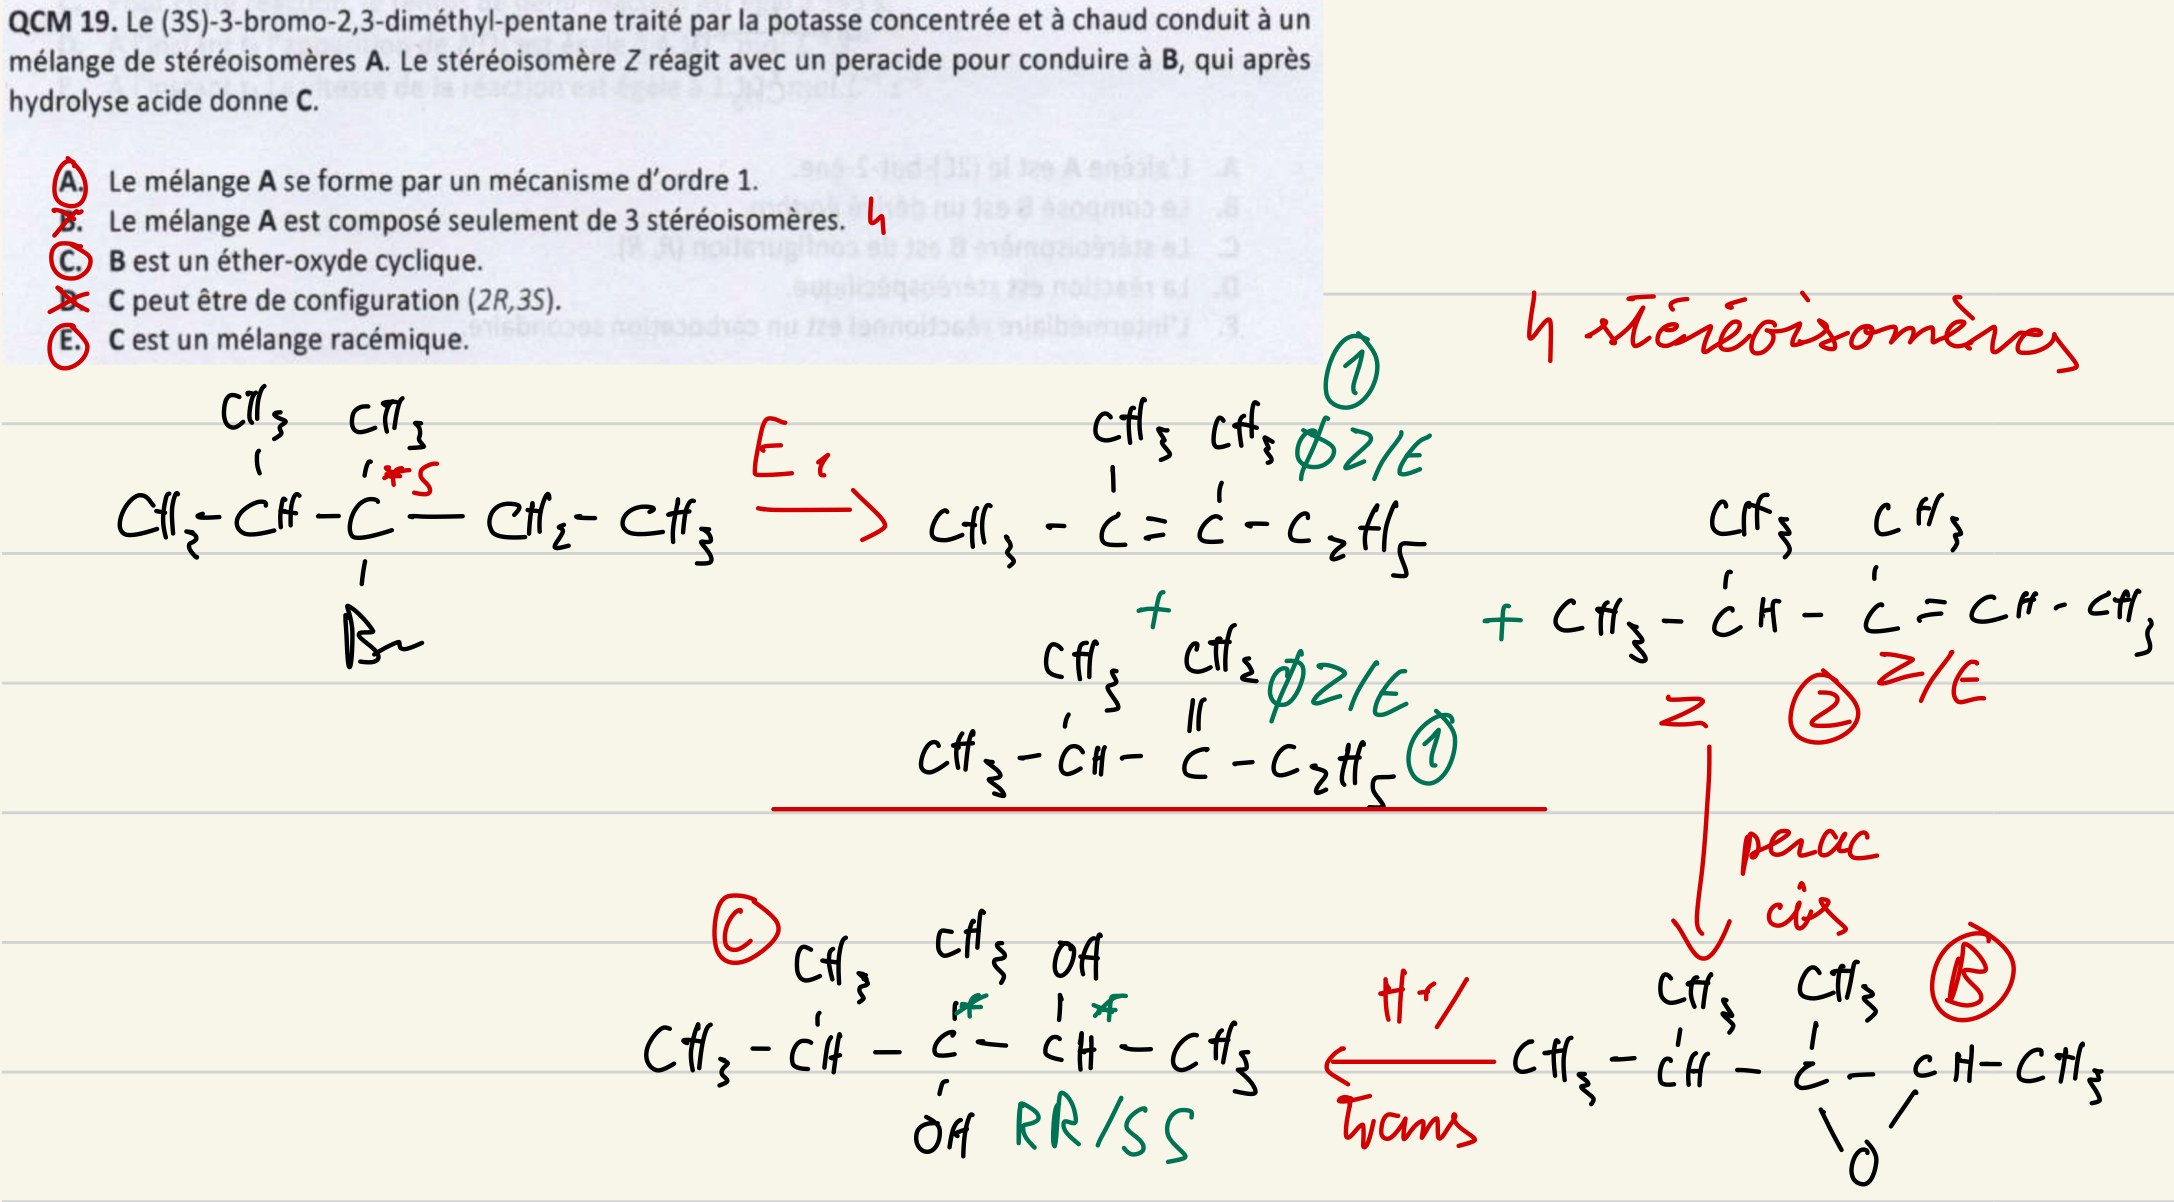 QCM 19. Le (3S)-3-bromo-2,3-diméthyl-pentane traité par la potasse concentrée et à chaud conduit à un
mélange de stéréoisomères A. Le stéréoisomère Z réagit avec un peracide pour conduire à B, qui après
hydrolyse acide donne C.
A. Le mélange A se forme par un mécanisme d'ordre 1.
B. Le mélange A est composé seulement de 3 stéréoisomères. 4
C. B est un éther-oxyde cyclique.
D. C peut être de configuration (2R,3S).
E. C est un mélange racémique.
4 stéréoisomères
CH3 CH3
* S
CH3 - CH - C - CH2 - CH3
Br
E1
1
CH3 CH3 ∅ Z/E
CH3 - C = C - C2H5
+
CH3 CH2 ∅ Z/E
CH3 - CH - C - C2H5 1
CH3 CH3
+ CH3 - CH - C = CH - CH3
Z 2 Z/E
perac
cis
C
CH3 CH3 OH
* *
CH3 - CH - C - CH - CH3
OH RR/SS
H+/
Trans
CH3 CH3 B
CH3 - CH - C - CH - CH3
O